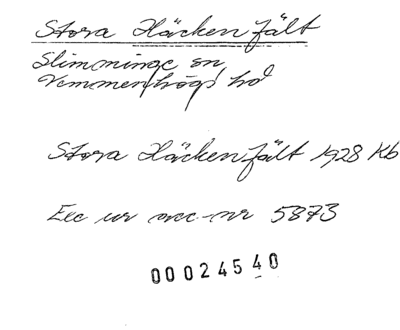 Stora Häcken fält
Slimminge sn
Vemmenhögs hd
Stora Häcken fält 1928 Kb
Exc ur acc-nr 5873
00024540